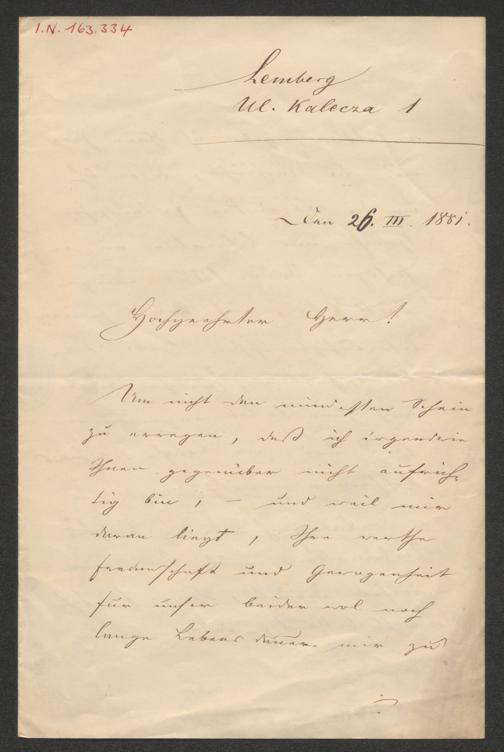 I.N. 163.334
Lemberg
Ul. Kalecza 1
Den 26. III. 1881.
Hochgeehrter Herr!
Um nicht den mindesten Schein
zu erregen, daß ich irgendwie
Ihnen gegenüber nicht aufrich-
tig bin, – und weil mir
daran liegt, Ihre werthe
Freundschaft und Gewogenheit
für unser beider wol noch
lange Lebensdauer mir zu